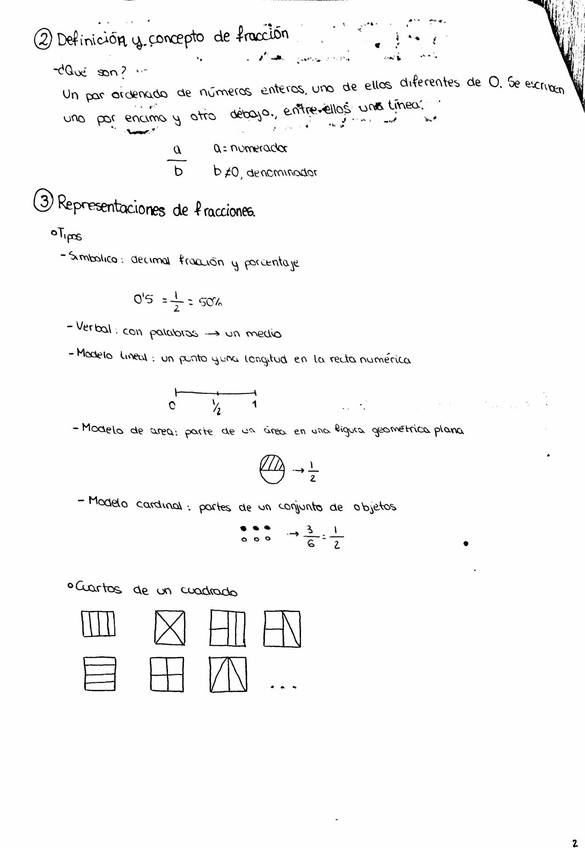 ② Definición y concepto de fracción
-¿Qué son?
Un par ordenado de números enteros, uno de ellos diferentes de 0. Se escriben
uno por encima y otro debajo, entre ellos una línea:
a a = numerador
b b≠0, denominador
③ Representaciones de fracciones.
°Tipos
- Simbolico: decimal fracción y porcentaje
0'5 = 1/2 = 50%
- Verbal: con palabras → un medio
- Modelo lineal: un punto y una longitud en la recta numérica
0 1/2 1
- Modelo de area: parte de un área en una figura geométrica plana
→ 1/2
- Modelo cardinal: partes de un conjunto de objetos
→ 3/6 = 1/2
°Cuartos de un cuadrado
...
2